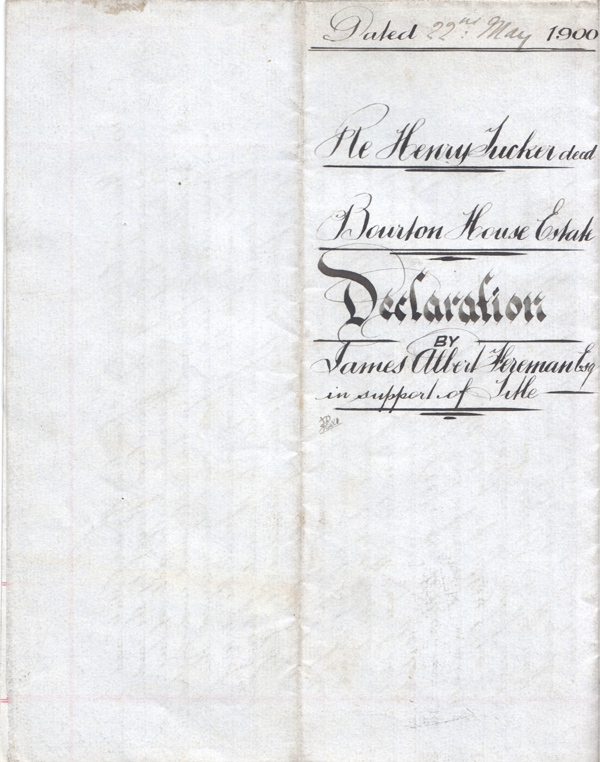 Dated 22nd May 1900
Re Henry Tucker decd
Bourton House Estate
Declaration
BY
James Albert Hereman Esq
in support of Title